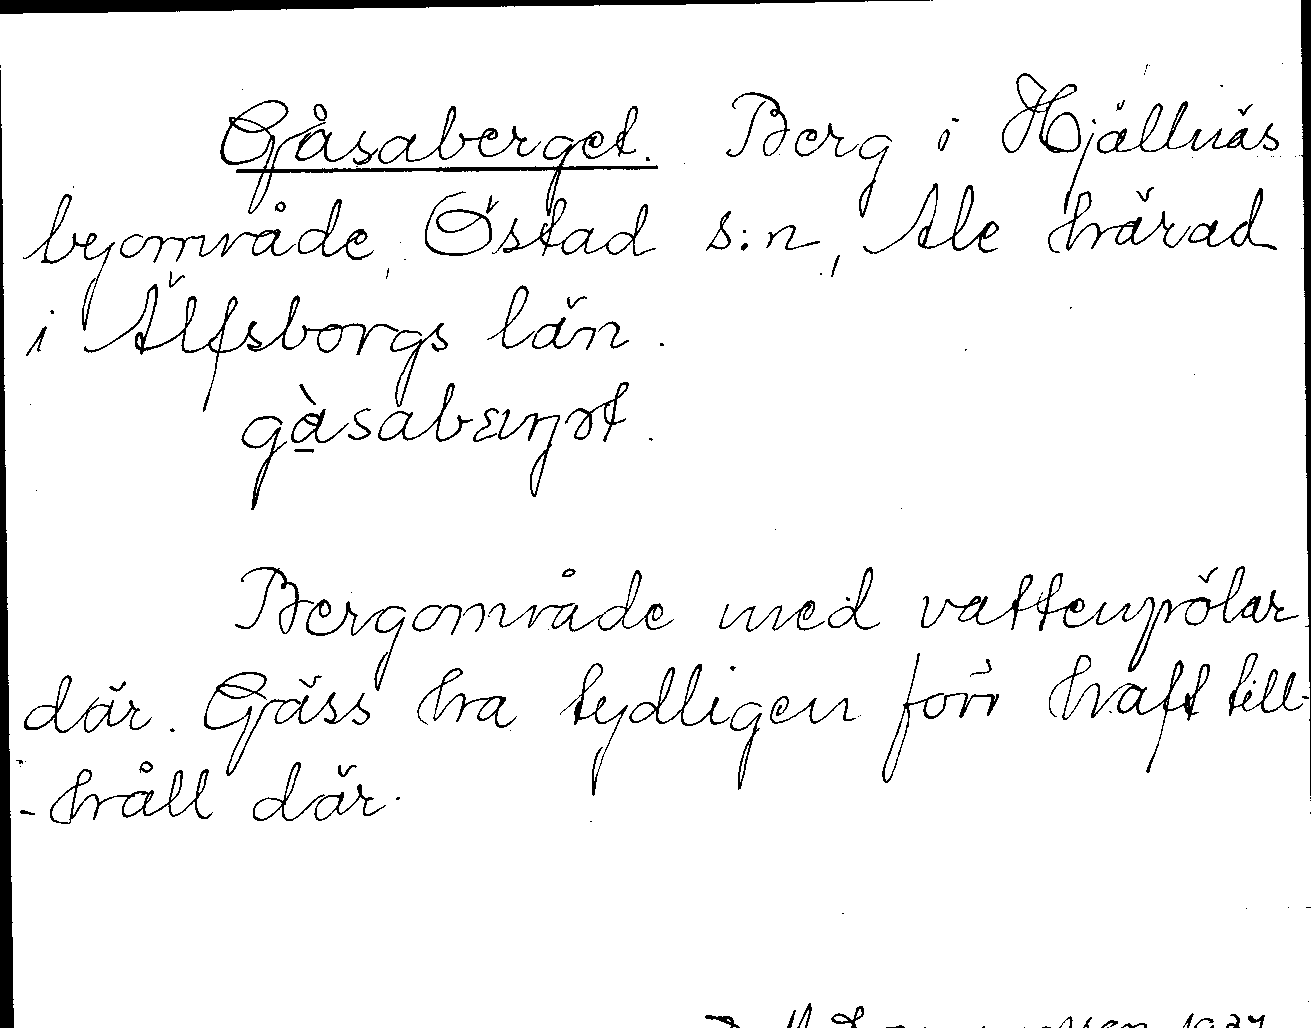 Gåsaberget. Berg i Hjällnäs
byområde, Östad s:n, Ale härad
i Älfsborgs län.
gàsabærjət.
Bergområde med vattenpölar
där. Gäss ha tydligen förr haft till-
-håll där.